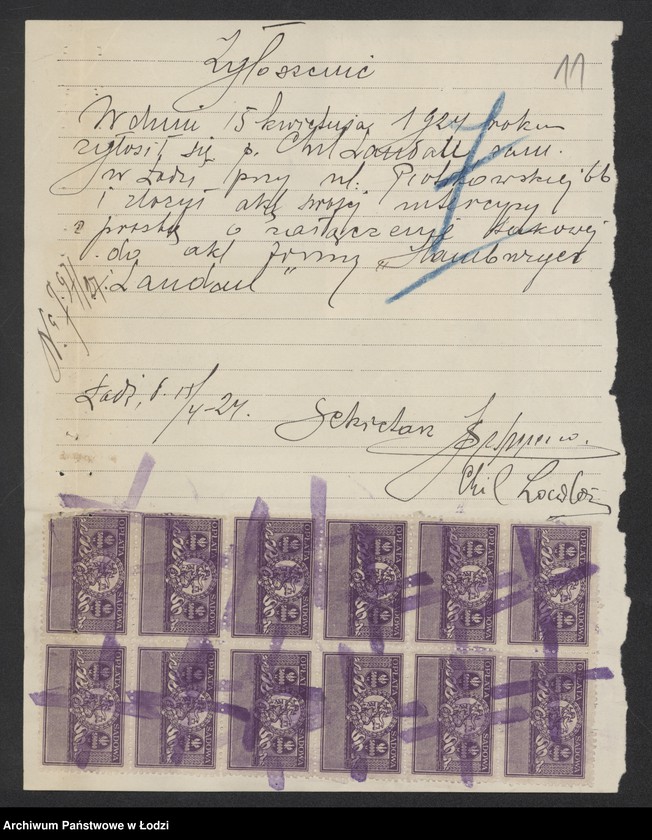 Zgłoszenie
11
W dniu 15 kwietnia 1924 roku
zgłosił się p. Chil Landau zam.
w Łodzi przy ul. Piotrkowskiej 66
i złożył akt swojej intercyzy
prosząc o załączenie takowej
do akt firmy „Hamburger
i Landau"
Łódź, d. 15/4-24.
Sekretarz
Chil
OPŁATA SĄDOWA
OPŁATA SĄDOWA
OPŁATA SĄDOWA
OPŁATA SĄDOWA
OPŁATA SĄDOWA
OPŁATA SĄDOWA
OPŁATA SĄDOWA
OPŁATA SĄDOWA
OPŁATA SĄDOWA
OPŁATA SĄDOWA
OPŁATA SĄDOWA
OPŁATA SĄDOWA
Archiwum Państwowe w Łodzi